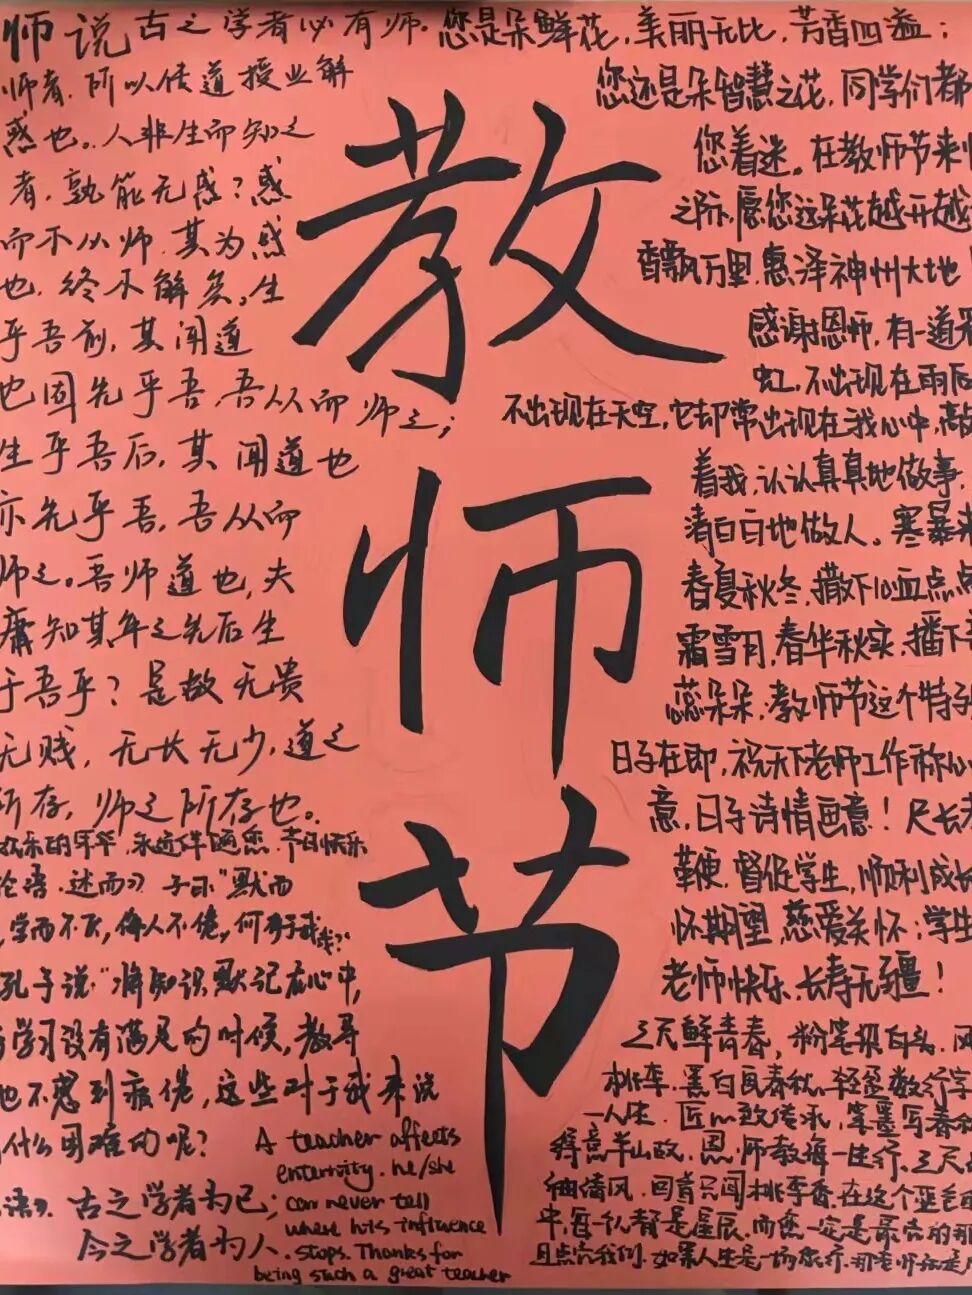 教师节
师说 古之学者必有师.
师者.所以传道授业解
惑也。人非生而知之
者,孰能无惑?惑
而不从师.其为惑
也.终不解矣。生
乎吾前,其闻道
也固先乎吾,吾从而师之;
生乎吾后,其闻道也
亦先乎吾,吾从而
师之。吾师道也,夫
庸知其年之先后生
于吾乎?是故无贵
无贱,无长无少,道之
所存,师之所存也。
乐的年华,永远伴随您.节日快乐
论语.述而》子曰"默而
,学而不厌,诲人不倦,何有于我哉?"
孔子说:"将知识默记在心中,
学习没有满足的时候,教导
也不感到疲倦,这些对于我来说
什么困难的呢?
语》.古之学者为己;
今之学者为人.
A teacher affects
enternity. he/she
can never tell
where his influence
stops. Thanks for
being such a great teacher
您是朵鲜花,美丽无比,芳香四溢;
您还是朵智慧之花,同学们都
您着迷。在教师节来
之际,愿您这朵花越开越
香飘万里,惠泽神州大地
感谢恩师,有一道
虹,不出现在雨后
不出现在天空,它却常出现在我心中,
着我,认认真真地做事,
清白白地做人。寒暑
春夏秋冬,撒下心血点点
霜雪月,春华秋实,播下
蕊朵朵,教师节这个特
日子在即,祝天下老师工作称心
意,日子诗情画意!尺长
鞭,督促学生,顺利成长
怀期望,慈爱关怀;学生
老师快乐,长寿无疆!
三尺鲜青春,粉笔
桃李.黑白画春秋.轻盈数行字
一人生.匠心致传承,笔墨写春秋
恩师教诲一生行.三尺
细清风.回首只闻桃李香.在这个
中,每一个人都是星辰.而您一定是最亮的那
且点亮我们.如果人生是一场